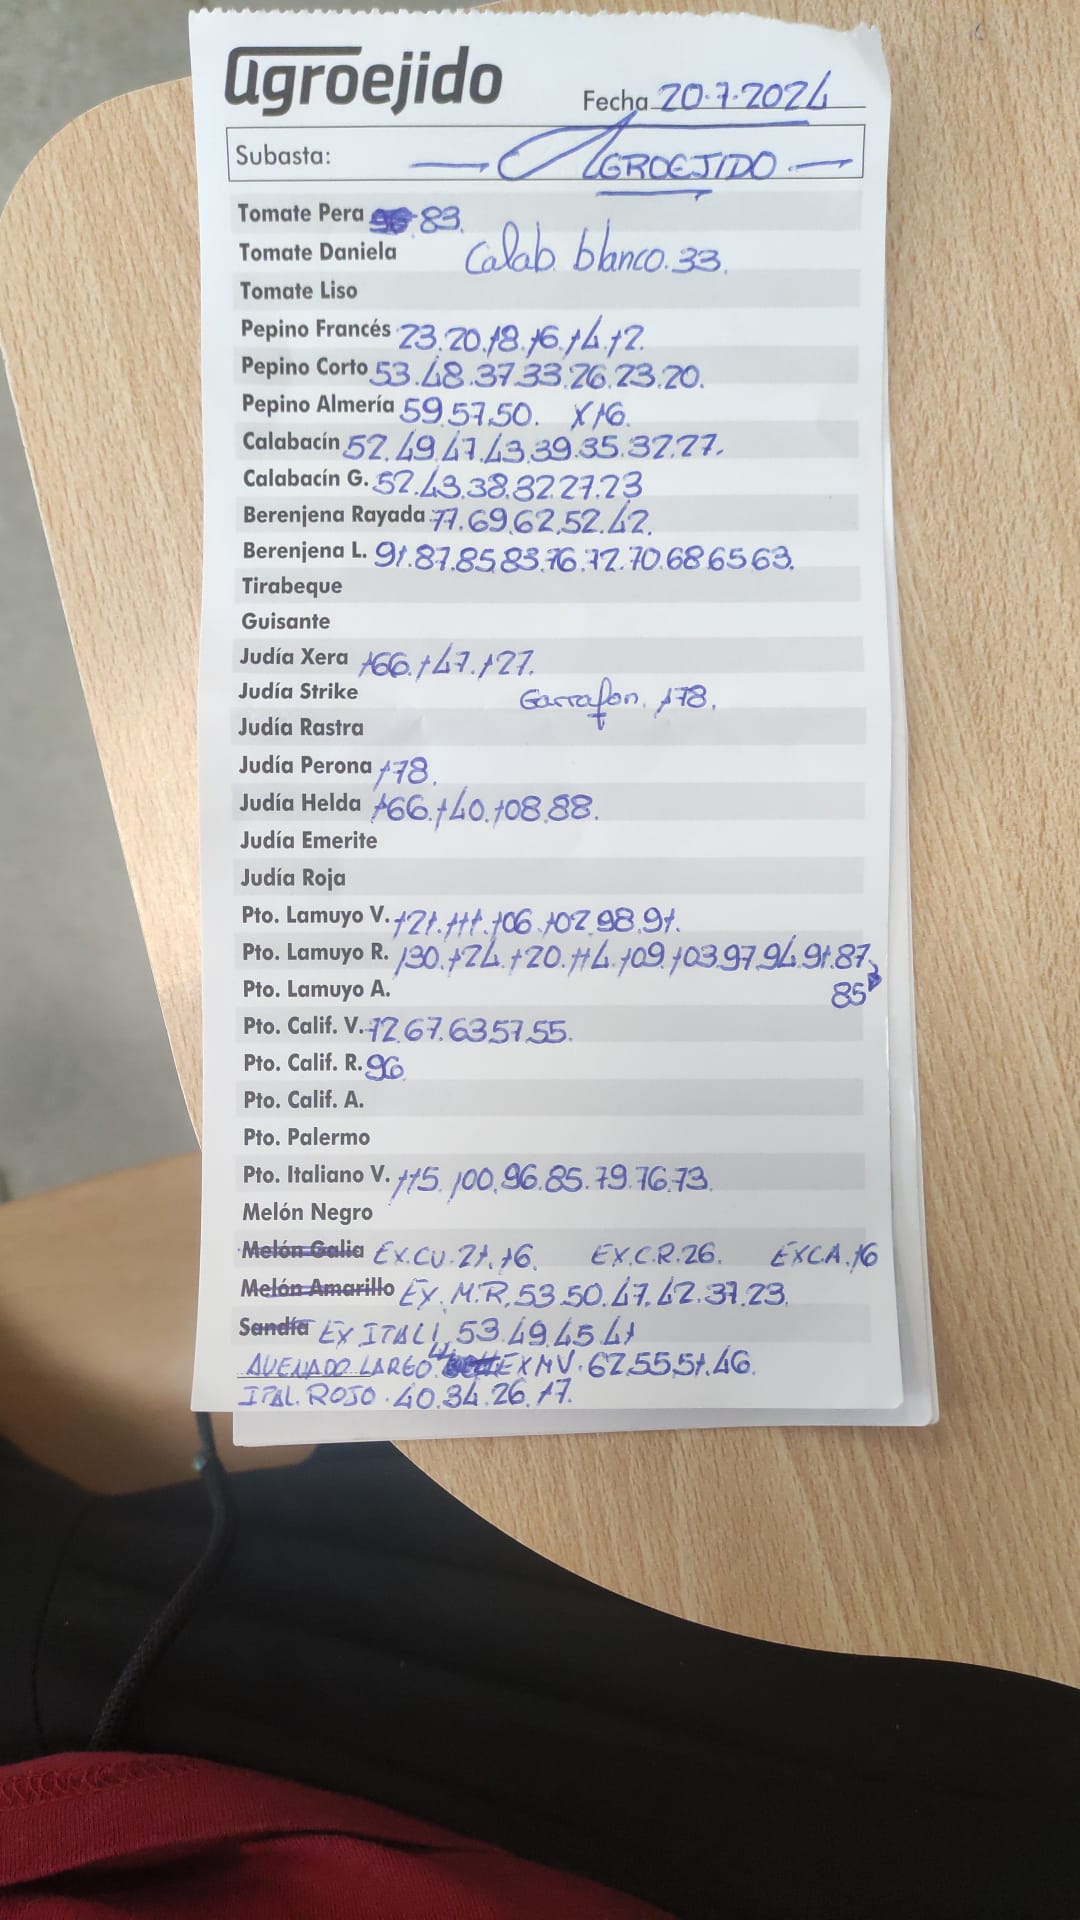 agroejido
Fecha 20.7.2024
Subasta: AGROEJIDO
Tomate Pera 83.
Tomate Daniela Calab. blanco. 33.
Tomate Liso
Pepino Francés 23.20.18.16.14.12.
Pepino Corto 53.48.37.33.26.23.20.
Pepino Almería 59.57.50. X16.
Calabacín 52.49.47.43.39.35.32.27.
Calabacín G. 52.43.38.32.27.23
Berenjena Rayada 77.69.62.52.42.
Berenjena L. 91.87.85.83.76.72.70.68.65.63.
Tirabeque
Guisante
Judía Xera 166.147.127.
Judía Strike Garrafon. 178.
Judía Rastra
Judía Perona 178.
Judía Helda 166.140.108.88.
Judía Emerite
Judía Roja
Pto. Lamuyo V. 121.111.106.102.98.91.
Pto. Lamuyo R. 130.124.120.114.109.103.97.94.91.87.
Pto. Lamuyo A. 85
Pto. Calif. V. 72.67.63.57.55.
Pto. Calif. R. 96
Pto. Calif. A.
Pto. Palermo
Pto. Italiano V. 115.100.96.85.79.76.73.
Melón Negro
Melón Galia EX.CV.21.16. EX.C.R.26. EXCA.16
Melón Amarillo EX.M.R.53.50.47.42.37.23.
Sandía EX ITALI. 53.49.45.41
AVENADO LARGO. EXMV.62.55.51.46.
ITAL. ROJO.40.34.26.17.